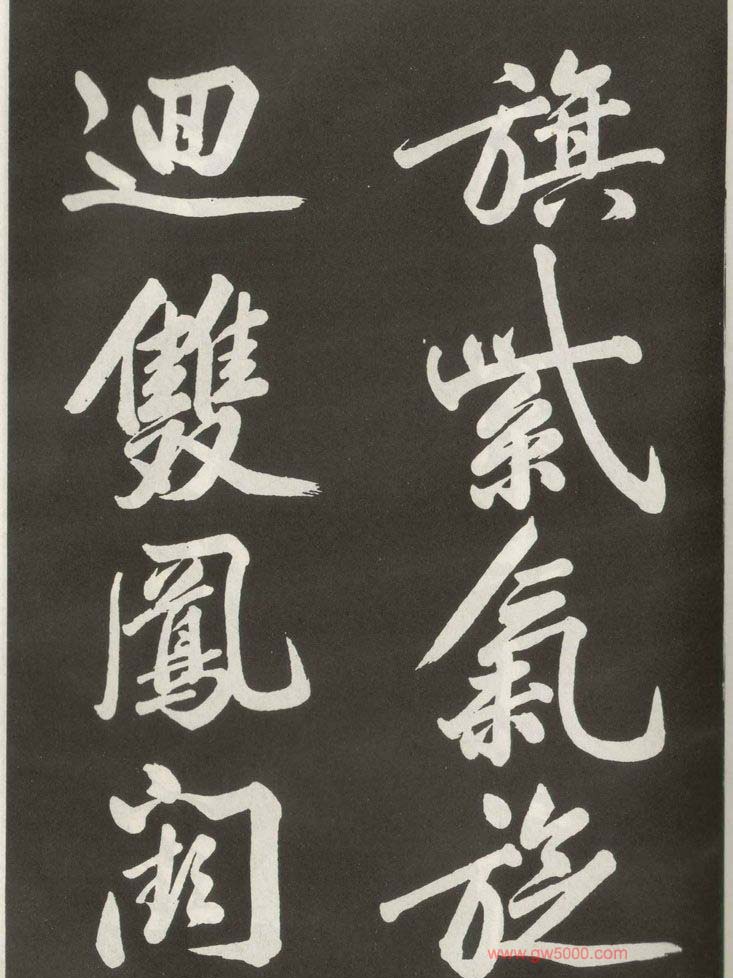 旗紫氣旋
迴雙鳳闕
www.gw5000.com